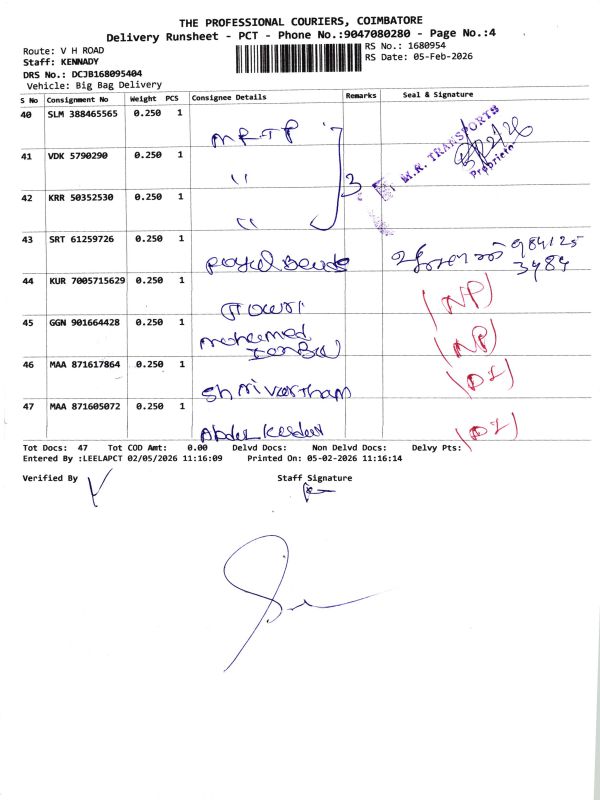 THE PROFESSIONAL COURIERS, COIMBATORE
Delivery Runsheet - PCT - Phone No.:9047080280 - Page No.:4
Route: V H ROAD
Staff: KENNADY
DRS No.: DCJB168095404
Vehicle: Big Bag Delivery
RS No.: 1680954
RS Date: 05-Feb-2026
S No Consignment No Weight PCS Consignee Details Remarks Seal & Signature
40 SLM 388465565 0.250 1 MRTP
41 VDK 5790290 0.250 1 "
42 KRR 50352530 0.250 1 "
3
M.R. TRANSPORTS
Proprietor
43 SRT 61259726 0.250 1 984125
3484
44 KUR 7005715629 0.250 1 Gowri (NP)
45 GGN 901664428 0.250 1 mohamed (NP)
46 MAA 871617864 0.250 1 Shrivartham (DL)
47 MAA 871605072 0.250 1 Abdul Kader (DL)
Tot Docs: 47 Tot COD Amt: 0.00 Delvd Docs: Non Delvd Docs: Delvy Pts:
Entered By :LEELAPCT 02/05/2026 11:16:09 Printed On: 05-02-2026 11:16:14
Verified By Staff Signature